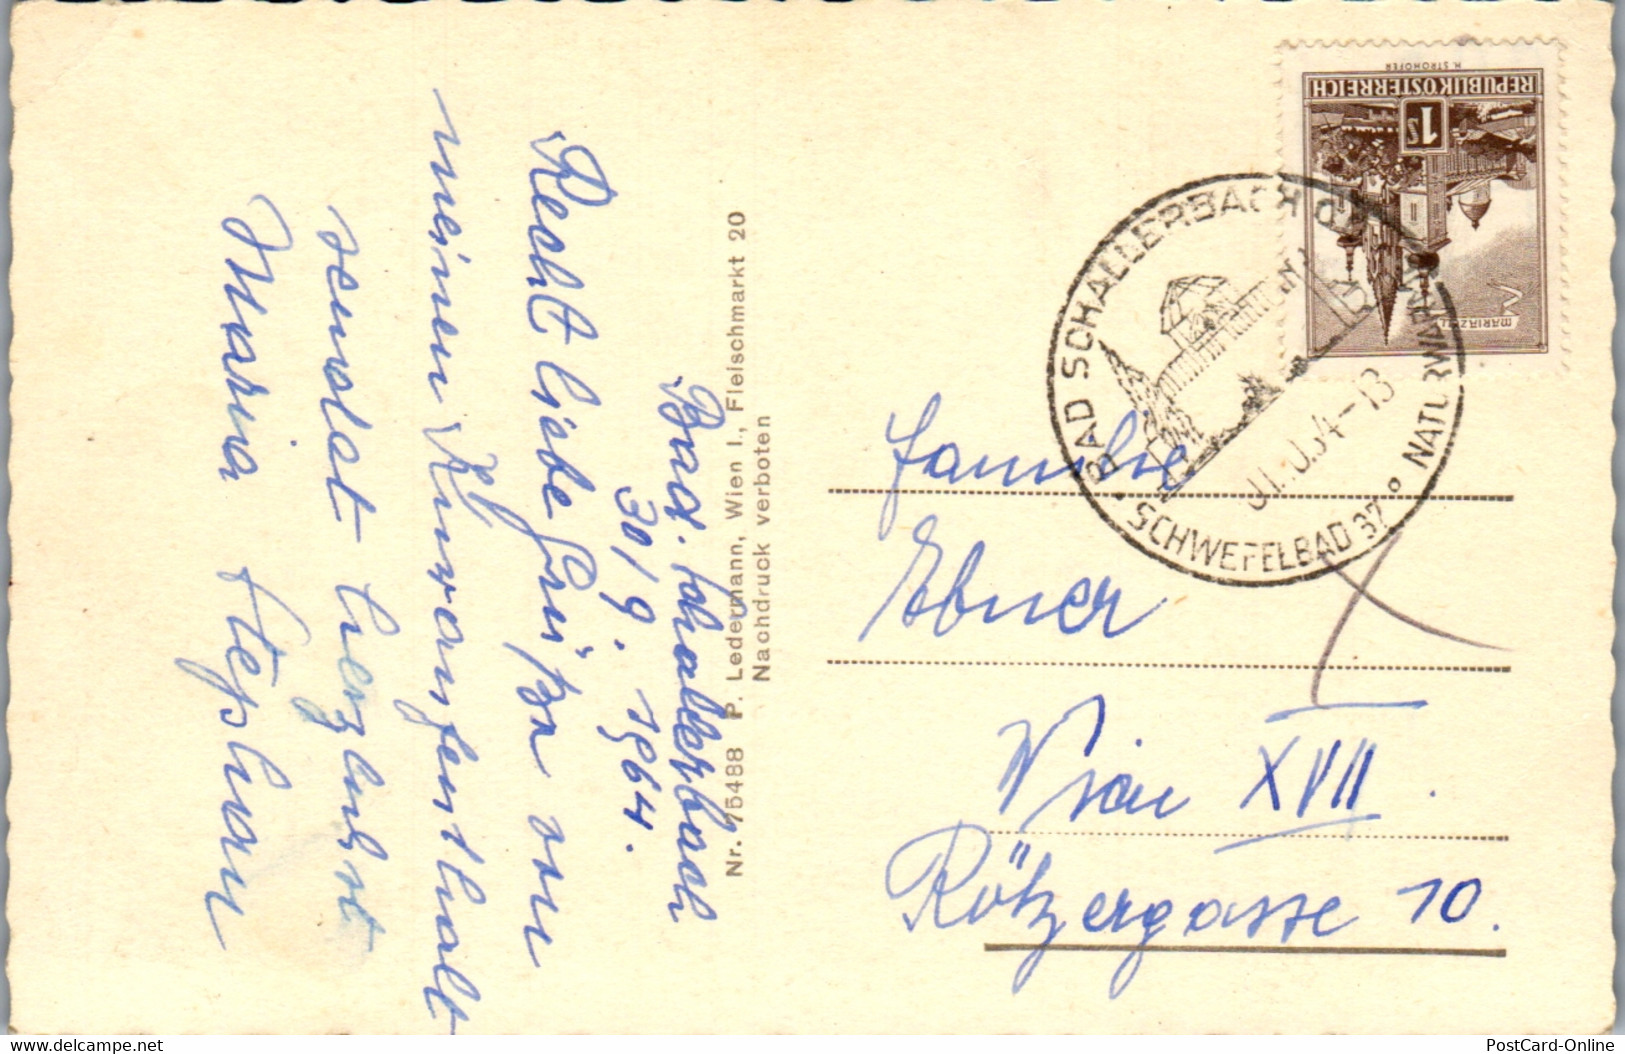 Bad. Schallerbach
30/9. 1964.
Recht liebe Grüße von
meinem Kuraufenthalt
sendet herzlichst
Maria Stephan
Nr. 15488 P. Ledermann, Wien I., Fleischmarkt 20
Nachdruck verboten
REPUBLIK ÖSTERREICH
1S
MARIAZELL
H. STROHOFER
BAD SCHALLERBACH O.Ö.
SCHWEFELBAD 37° NATURWARM
Familie
Ebner
Wien XVII.
Rötzergasse 10.
PostCard-Online